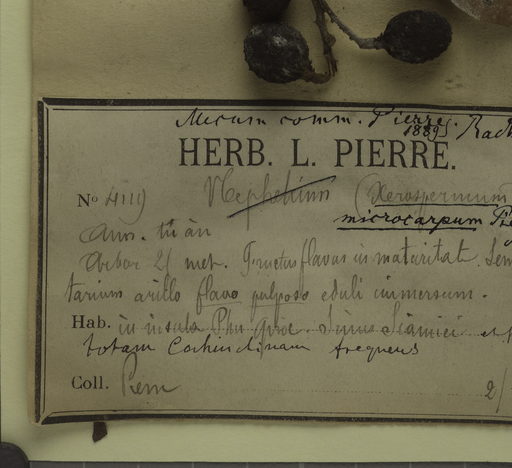 Mecum comm. Pierre.
1889
HERB. L. PIERRE.
No 4119 Nephelium (Xerospermum
microcarpum
Arbor 2 met. Fructus flavus in maturitat.
arillo flavo pulposo eduli immersum.
Hab. in insula Phu Sinus Siamici et
totam Cochinchinam frequens
Coll. Pierre 2/